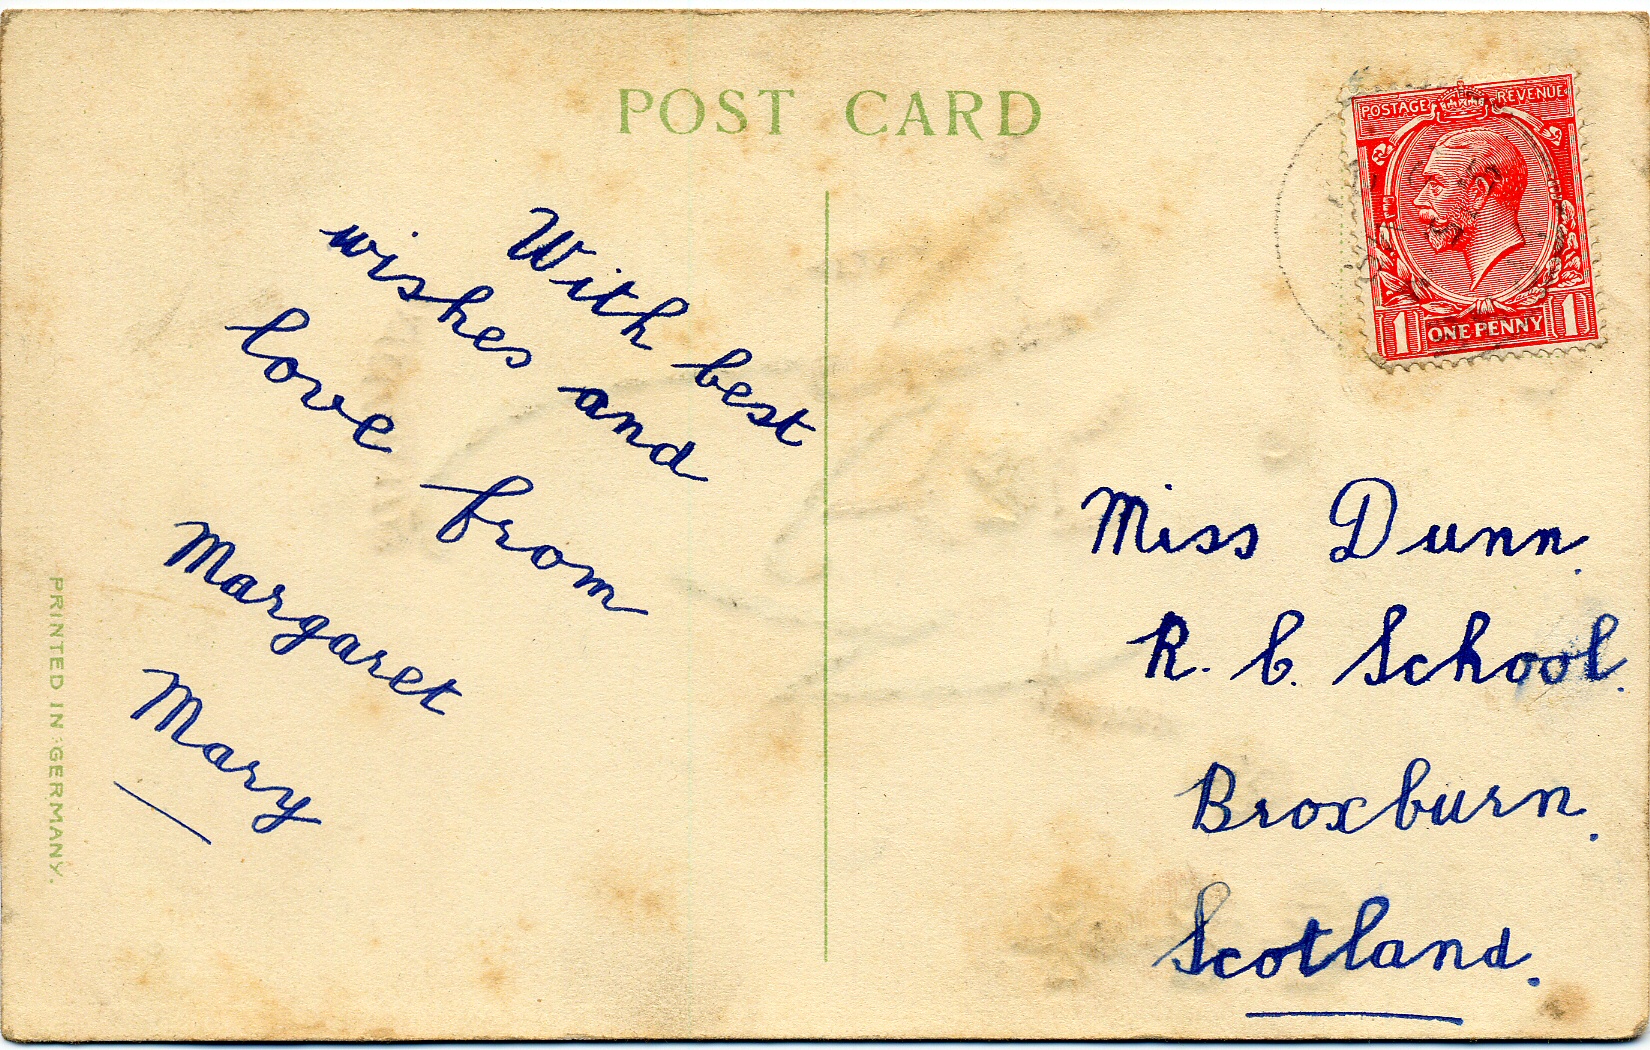 POST CARD
POSTAGE REVENUE
1 ONE PENNY 1
With best
wishes and
love from
Margaret
Mary
Miss Dunn.
R. C. School.
Broxburn.
Scotland.
PRINTED IN GERMANY.